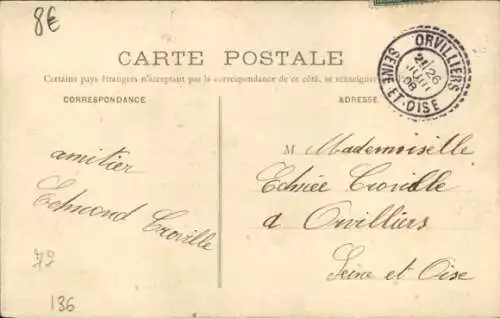 8€
CARTE POSTALE
Certains pays étrangers n'acceptant pas la correspondance de ce côté, se renseigner
CORRESPONDANCE
ADRESSE
ORVILLIERS
26
JUIN
08
SEINE-ET-OISE
amitier
Edmond Croville
M Mademoiselle
Croville
a Orvilliers
Seine et Oise
72
136